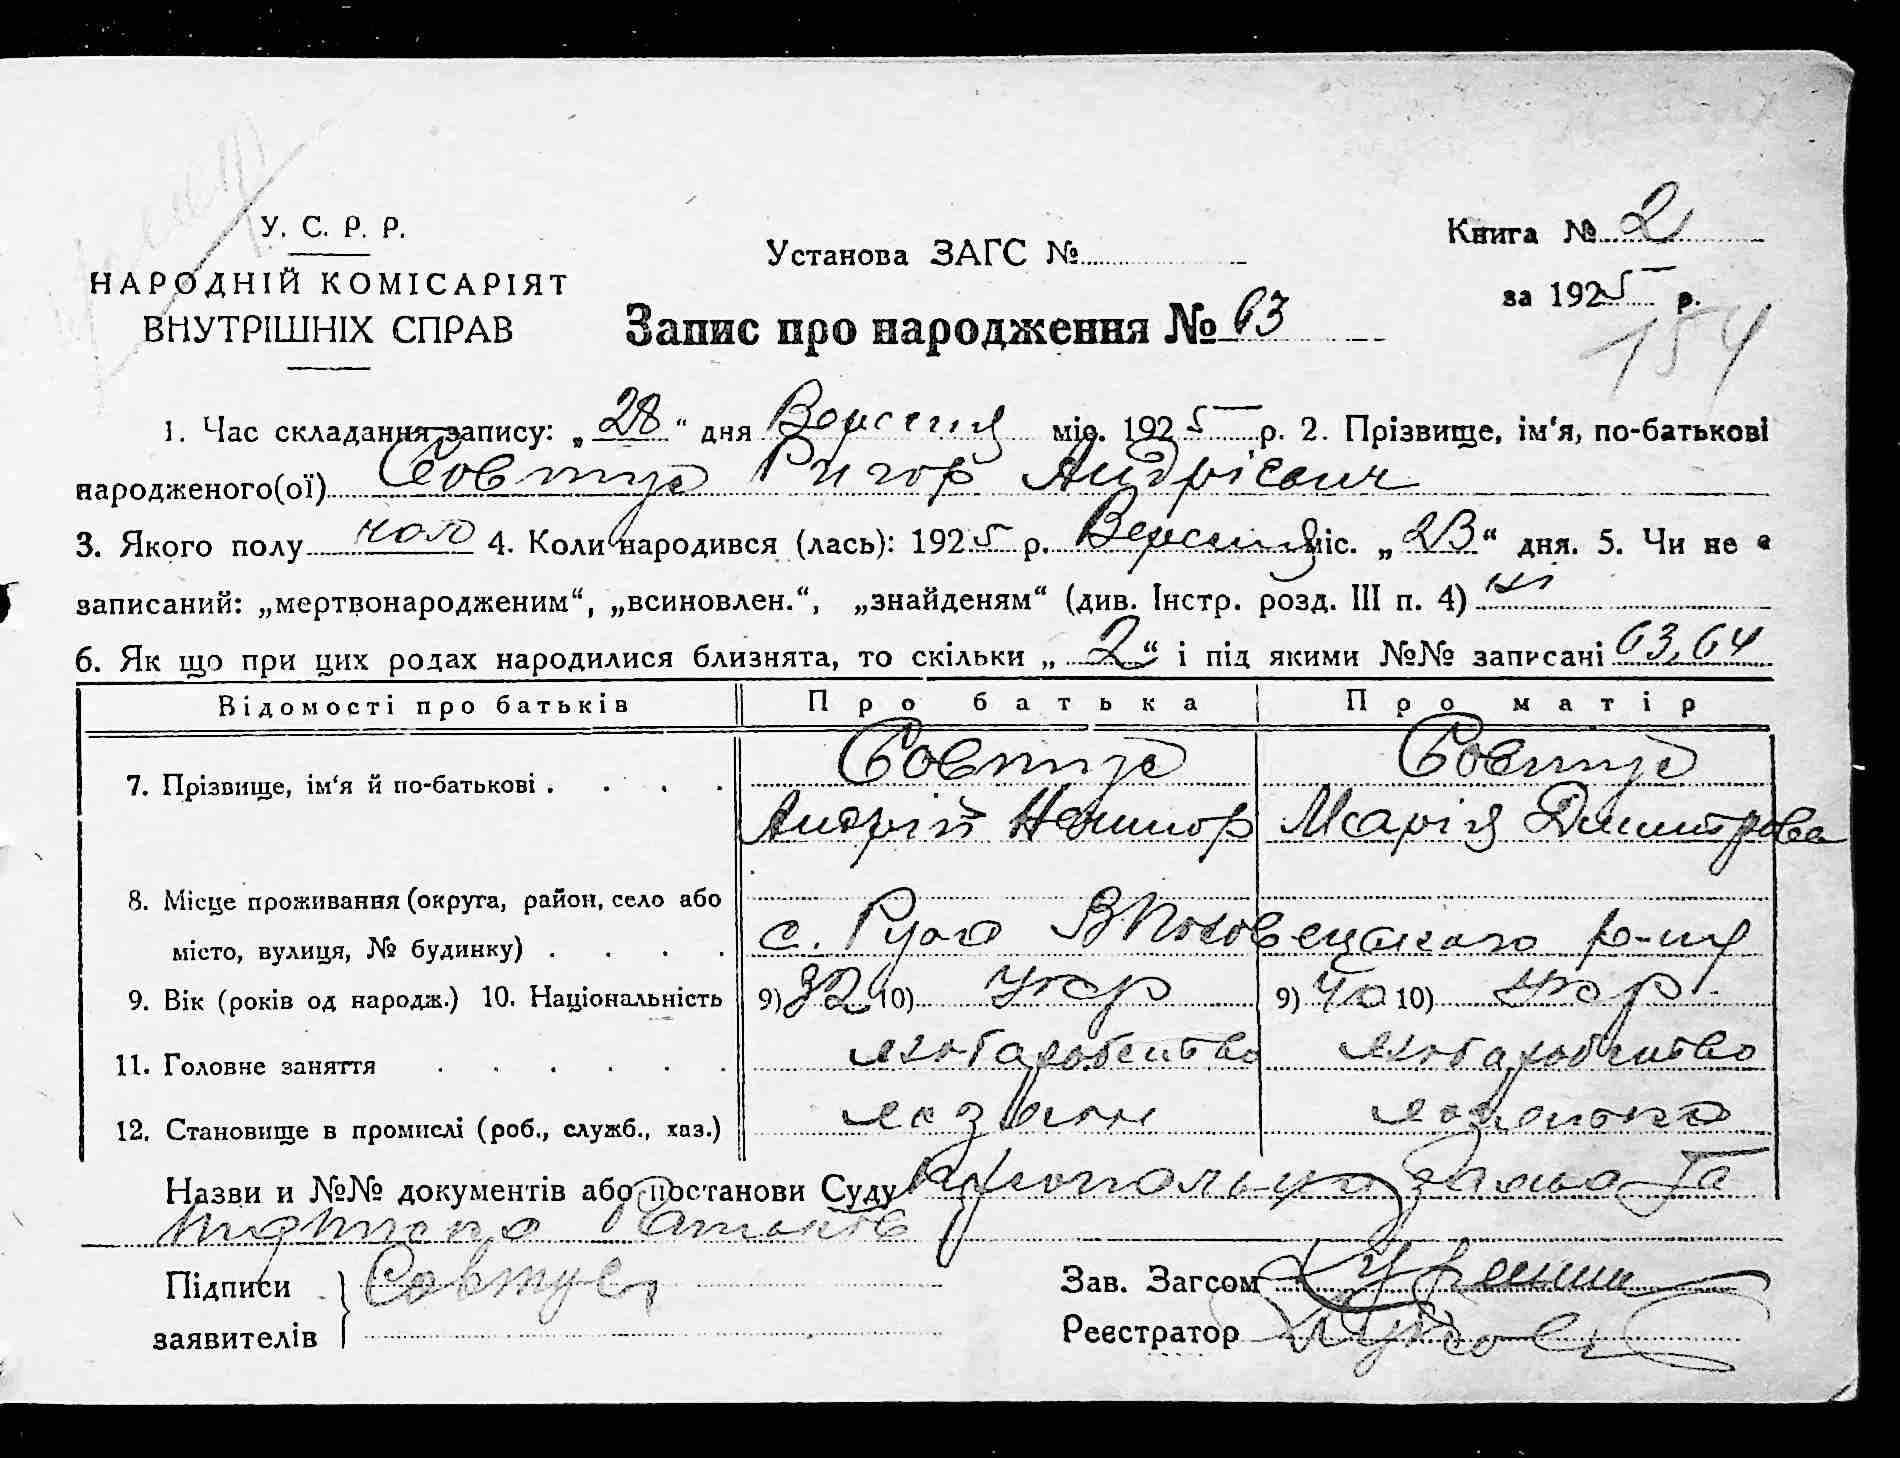 У. С. Р. Р.
НАРОДНІЙ КОМІСАРІЯТ
ВНУТРІШНІХ СПРАВ
Установа ЗАГС №
Книга № 2
за 1925 р.
154
Запис про народження № 63
1. Час складання запису: „28“ дня Вересня міс. 1925 р. 2. Прізвище, ім‘я, по-батькові
народженого(ої) Совтус Ригор Андрієвич
3. Якого полу чол 4. Коли народився (лась): 1925 р. Вересня міс. „23“ дня. 5. Чи не є
записаний: „мертвонародженим“, „всиновлен.“, „знайденям“ (див. Інстр. розд. III п. 4) ні
6. Як що при цих родах народилися близнята, то скільки „2“ і під якими №№ записані 63, 64
Відомості про батьків Про батька Про матір
7. Прізвище, ім‘я й по-батькові . . . . Совтус Совтус
Андрій Марія Дмитрова
8. Місце проживання (округа, район, село або
місто, вулиця, № будинку) . . . . с. Руда р-ну
9. Вік (років од народж.) 10. Національність 9) 32 10) Укр 9) 40 10) Укр
11. Головне заняття . . . . . . хліборобство хліборобство
12. Становище в промислі (роб., служб., хаз.) хазяїн хазяйка
Назви и №№ документів або постанови Суду заява та
підписка батьків
Підписи
заявителів
Совтус
Зав. Загсом
Реєстратор